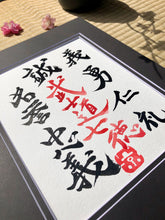 義勇仁礼
武士道七徳
誠
名誉
忠義